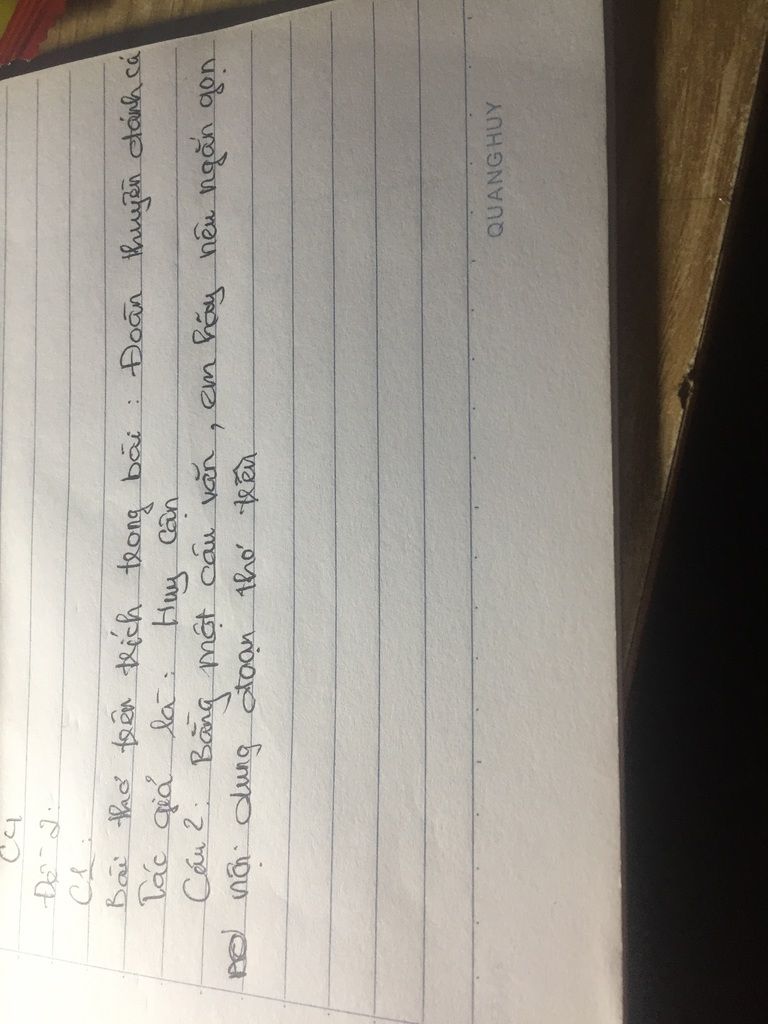 C4
Đề 2:
C1:
Bài thơ trên trích trong bài : Đoàn thuyền đánh cá
Tác giả là : Huy Cận
Câu 2: Bằng một câu văn, em hãy nêu ngắn gọn
nội dung đoạn thơ trên
QUANG HUY